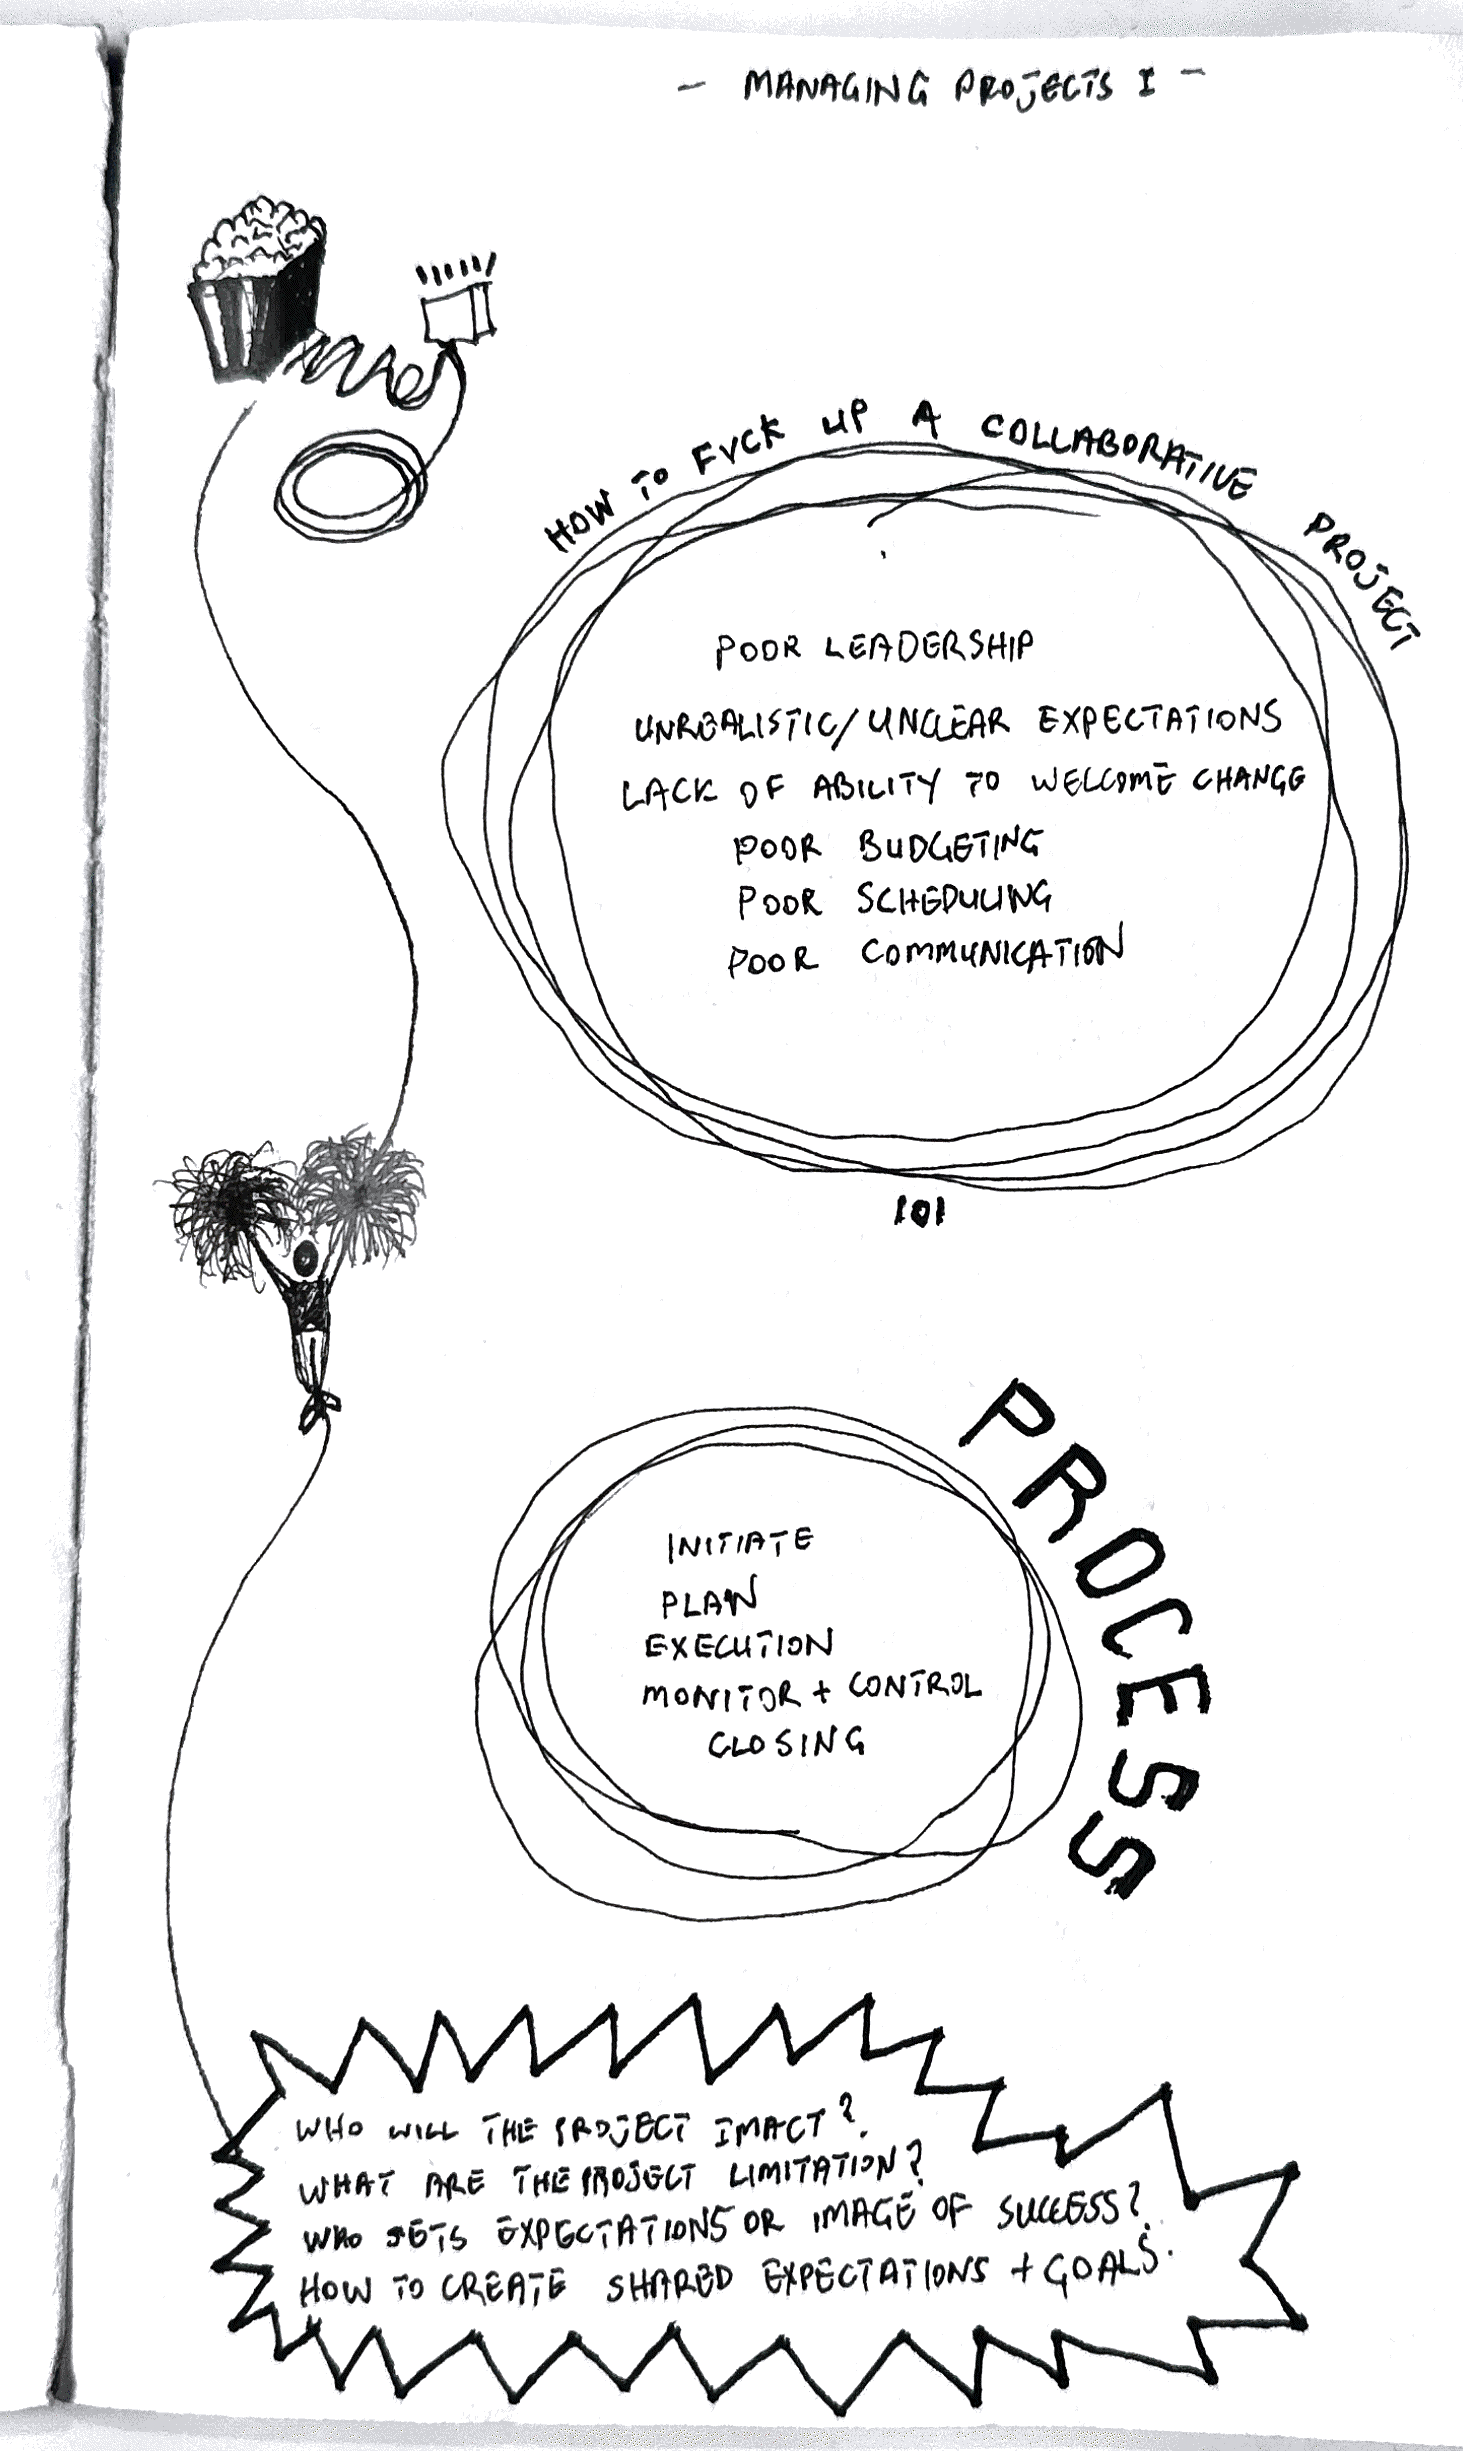 - MANAGING PROJECTS I -
HOW TO FVCK UP A COLLABORATIVE PROJECT
POOR LEADERSHIP
UNREALISTIC/UNCLEAR EXPECTATIONS
LACK OF ABILITY TO WELCOME CHANGE
POOR BUDGETING
POOR SCHEDULING
POOR COMMUNICATION
101
PROCESS
INITIATE
PLAN
EXECUTION
MONITOR + CONTROL
CLOSING
WHO WILL THE PROJECT IMACT?
WHAT ARE THE PROJECT LIMITATION?
WHO SETS EXPECTATIONS OR IMAGE OF SUCCESS?
HOW TO CREATE SHARED EXPECTATIONS + GOALS.